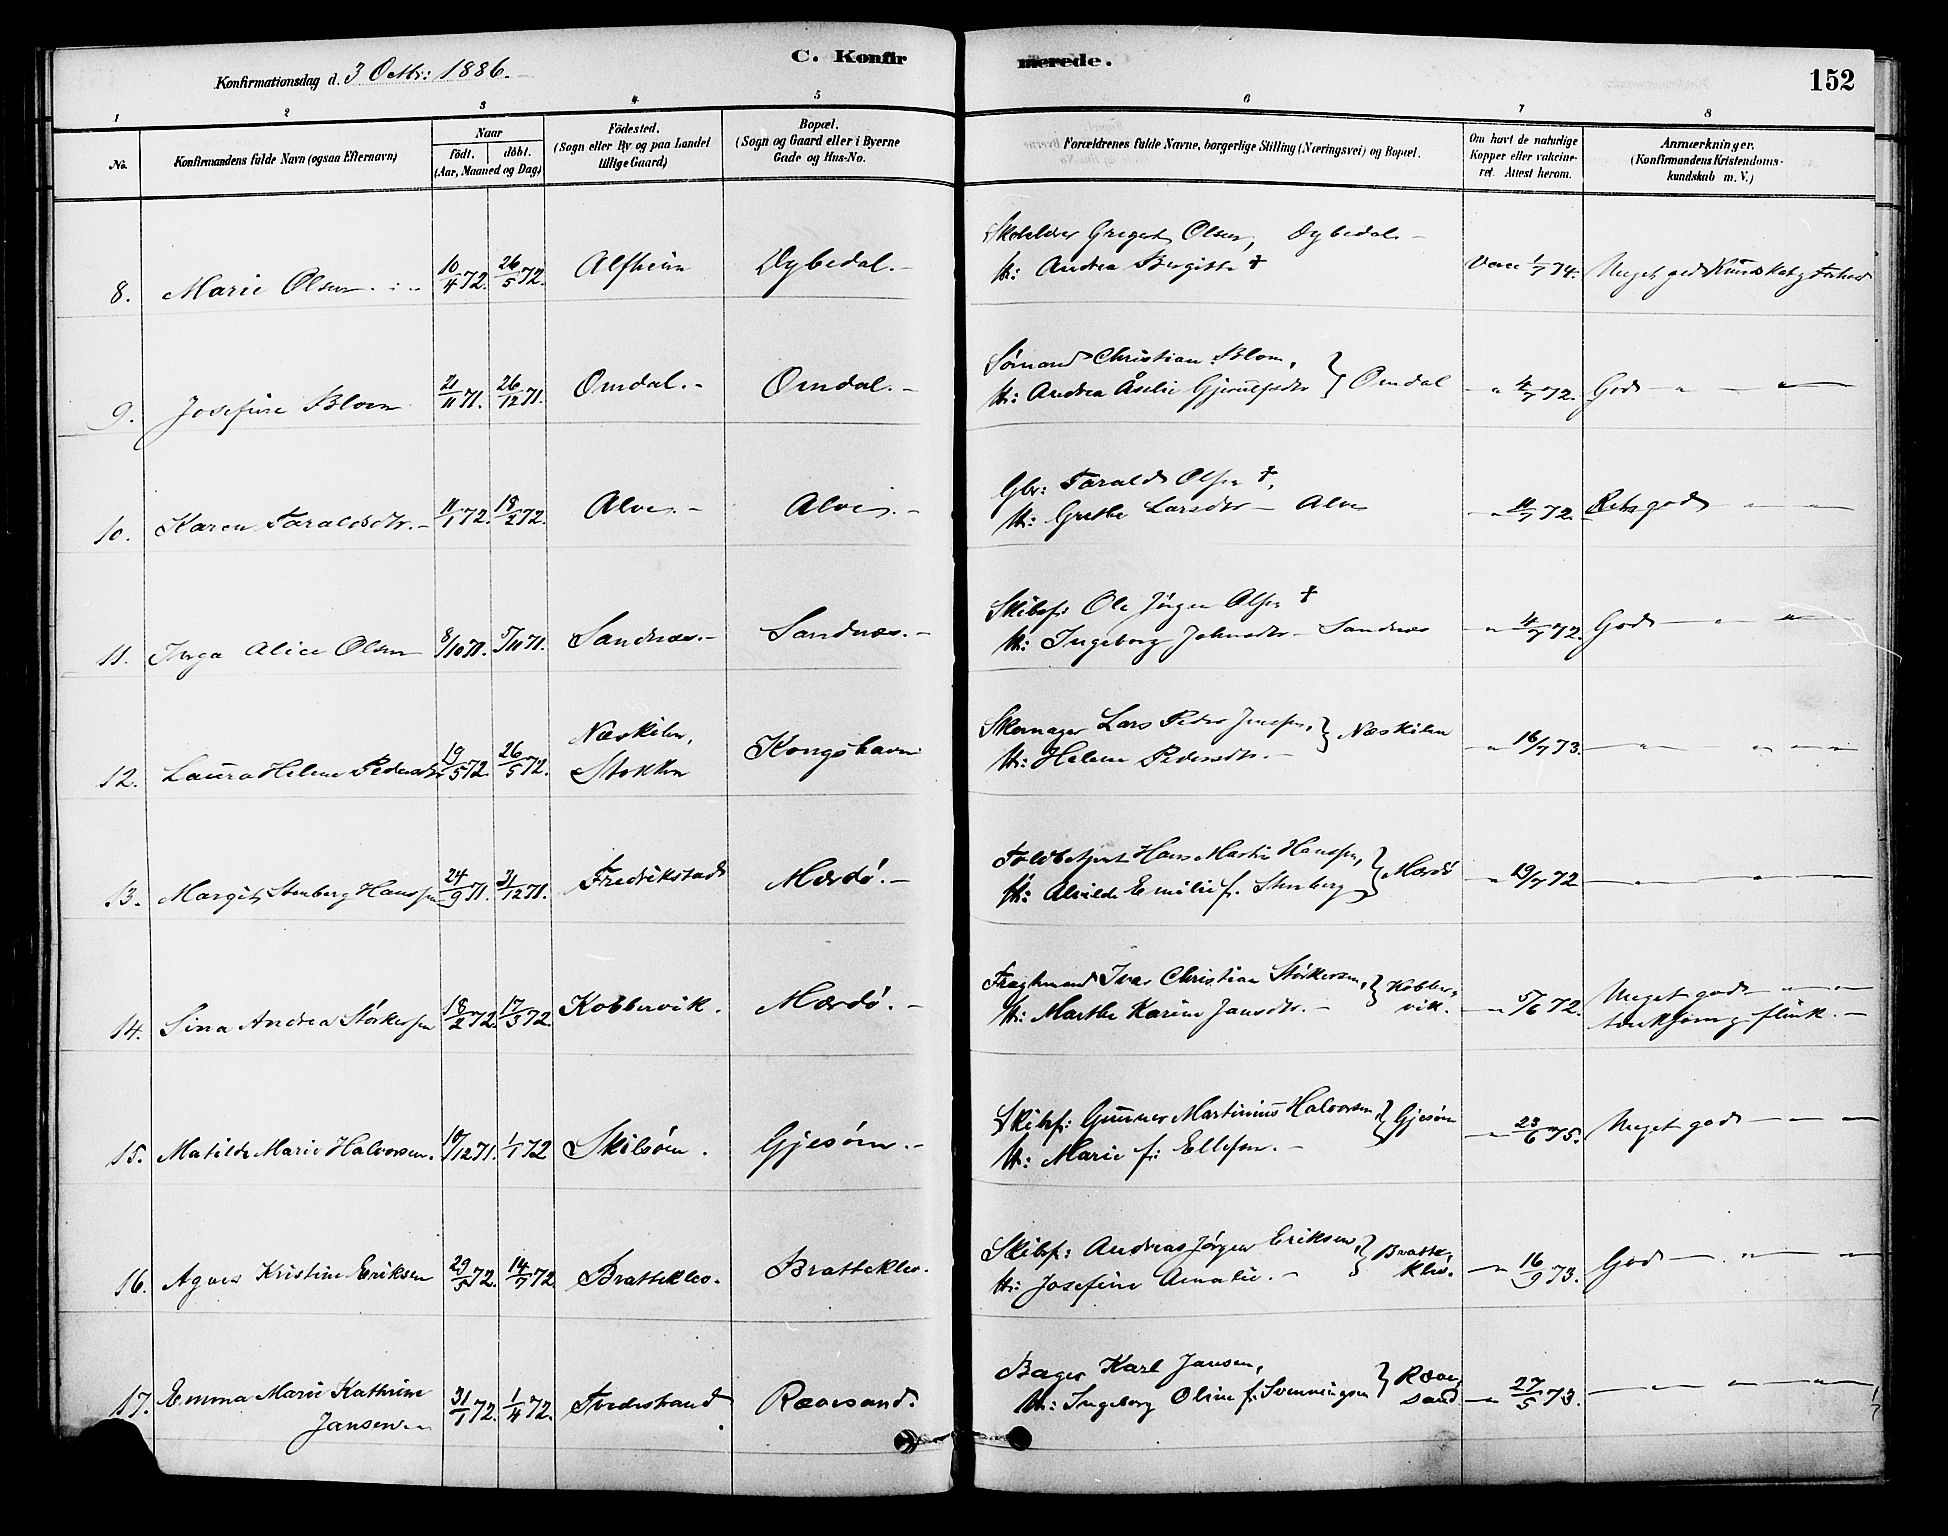 Konfirmationsdag d. 3 Octbr: 1886.
C. Konfirmerede.
152
1 2 3 4 5 6 7 8
No.
Konfirmandens fulde Navn (ogsaa Efternavn)
Naar
Födt. döbt.
(Aar, Maaned og Dag)
Födested.
(Sogn eller By og paa Landet
tillige Gaard)
Bopæl.
(Sogn og Gaard eller i Byerne
Gade og Hus-No.
Forældrenes fulde Navne, borgerlige Stilling (Næringsvei) og Bopæl.
Om havt de naturlige
Kopper eller vakcine-
ret. Attest herom.
Anmærkninger.
(Konfirmandens Kristendoms-
kundskab m. V.)
8. Marie Olsen 10/4 72. 26/5 72. Alfheim Dybedal.
Olsen, Dybedal
H: Andrea Birgitte †
Vacc 1/7 74. Meget god Kundskab og Forhold
9. Josefine Blom 21/11 71. 26/12 71. Omdal. Omdal.
Sömand Christian Blom,
H: Andrea Åselie Gjerulfsdtr } Omdal
" 4/7 72. God " "
10. Karen Taraldsdtr. 11/1 72. 18/2 72. Alve. Alve.
Gbr: Tarald Olsen †,
H: Grethe Larsdtr - Alve
" 11/7 72. Retsgod " "
11. Inga Alice Olsen 8/10 71. 5/11 71. Sandnæs. Sandnæs.
Skibsf: Ole Jörgen Olsen †
H: Ingeborg Johnsdtr - Sandnæs
" 4/7 72. God " "
12. Laura Helene Pedersdtr 19/5 72. 26/5 72. Næskilen, Stokken Kongshavn
Skomager Lars Peder Jensen,
H: Helene Pedersdtr. } Næskilen
" 16/7 73. " " "
13. Margit Stenberg Hanssen 24/9 71. 31/12 71. Fredrikstad Mærdö.
Toldbetjent Hans Martin Hanssen,
H: Alvilde Emilie f. Stenberg } Mærdö
" 19/7 72 " " "
14. Sina Andrea Störkersen 18/2 72. 17/3 72. Kobbervik. Mærdö.
Fragtmand Ivar Christian Störkersen,
H: Marthe Karine Jansdtr. } Kobbervik.
" 5/6 72. Meget god " "
tænksom og flink.
15. Matilde Marie Halvorsen. 10/12 71. 1/1 72 Skilsöen. Gjesöen.
Skibsf: Gunner Martinius Halvorsen,
H: Marie f: Ellefsen. } Gjesöen
" 23/6 75. Meget god
16. Agnes Kristine Eriksen 29/5 72. 14/7 72 Bratteklev. Bratteklev.
Skibsf: Andreas Jörgen Eriksen,
H: Josefine Amalie. } Bratteklev.
" 16/9 73. God " "
17. Emma Marie Kathrine
Jansen 31/1 72. 1/4 72. Tvedestrand Rævesand.
Bager Karl Jansen,
H: Ingeborg Oline f. Svenningsen } Rævesand.
" 27/5 73. " " "